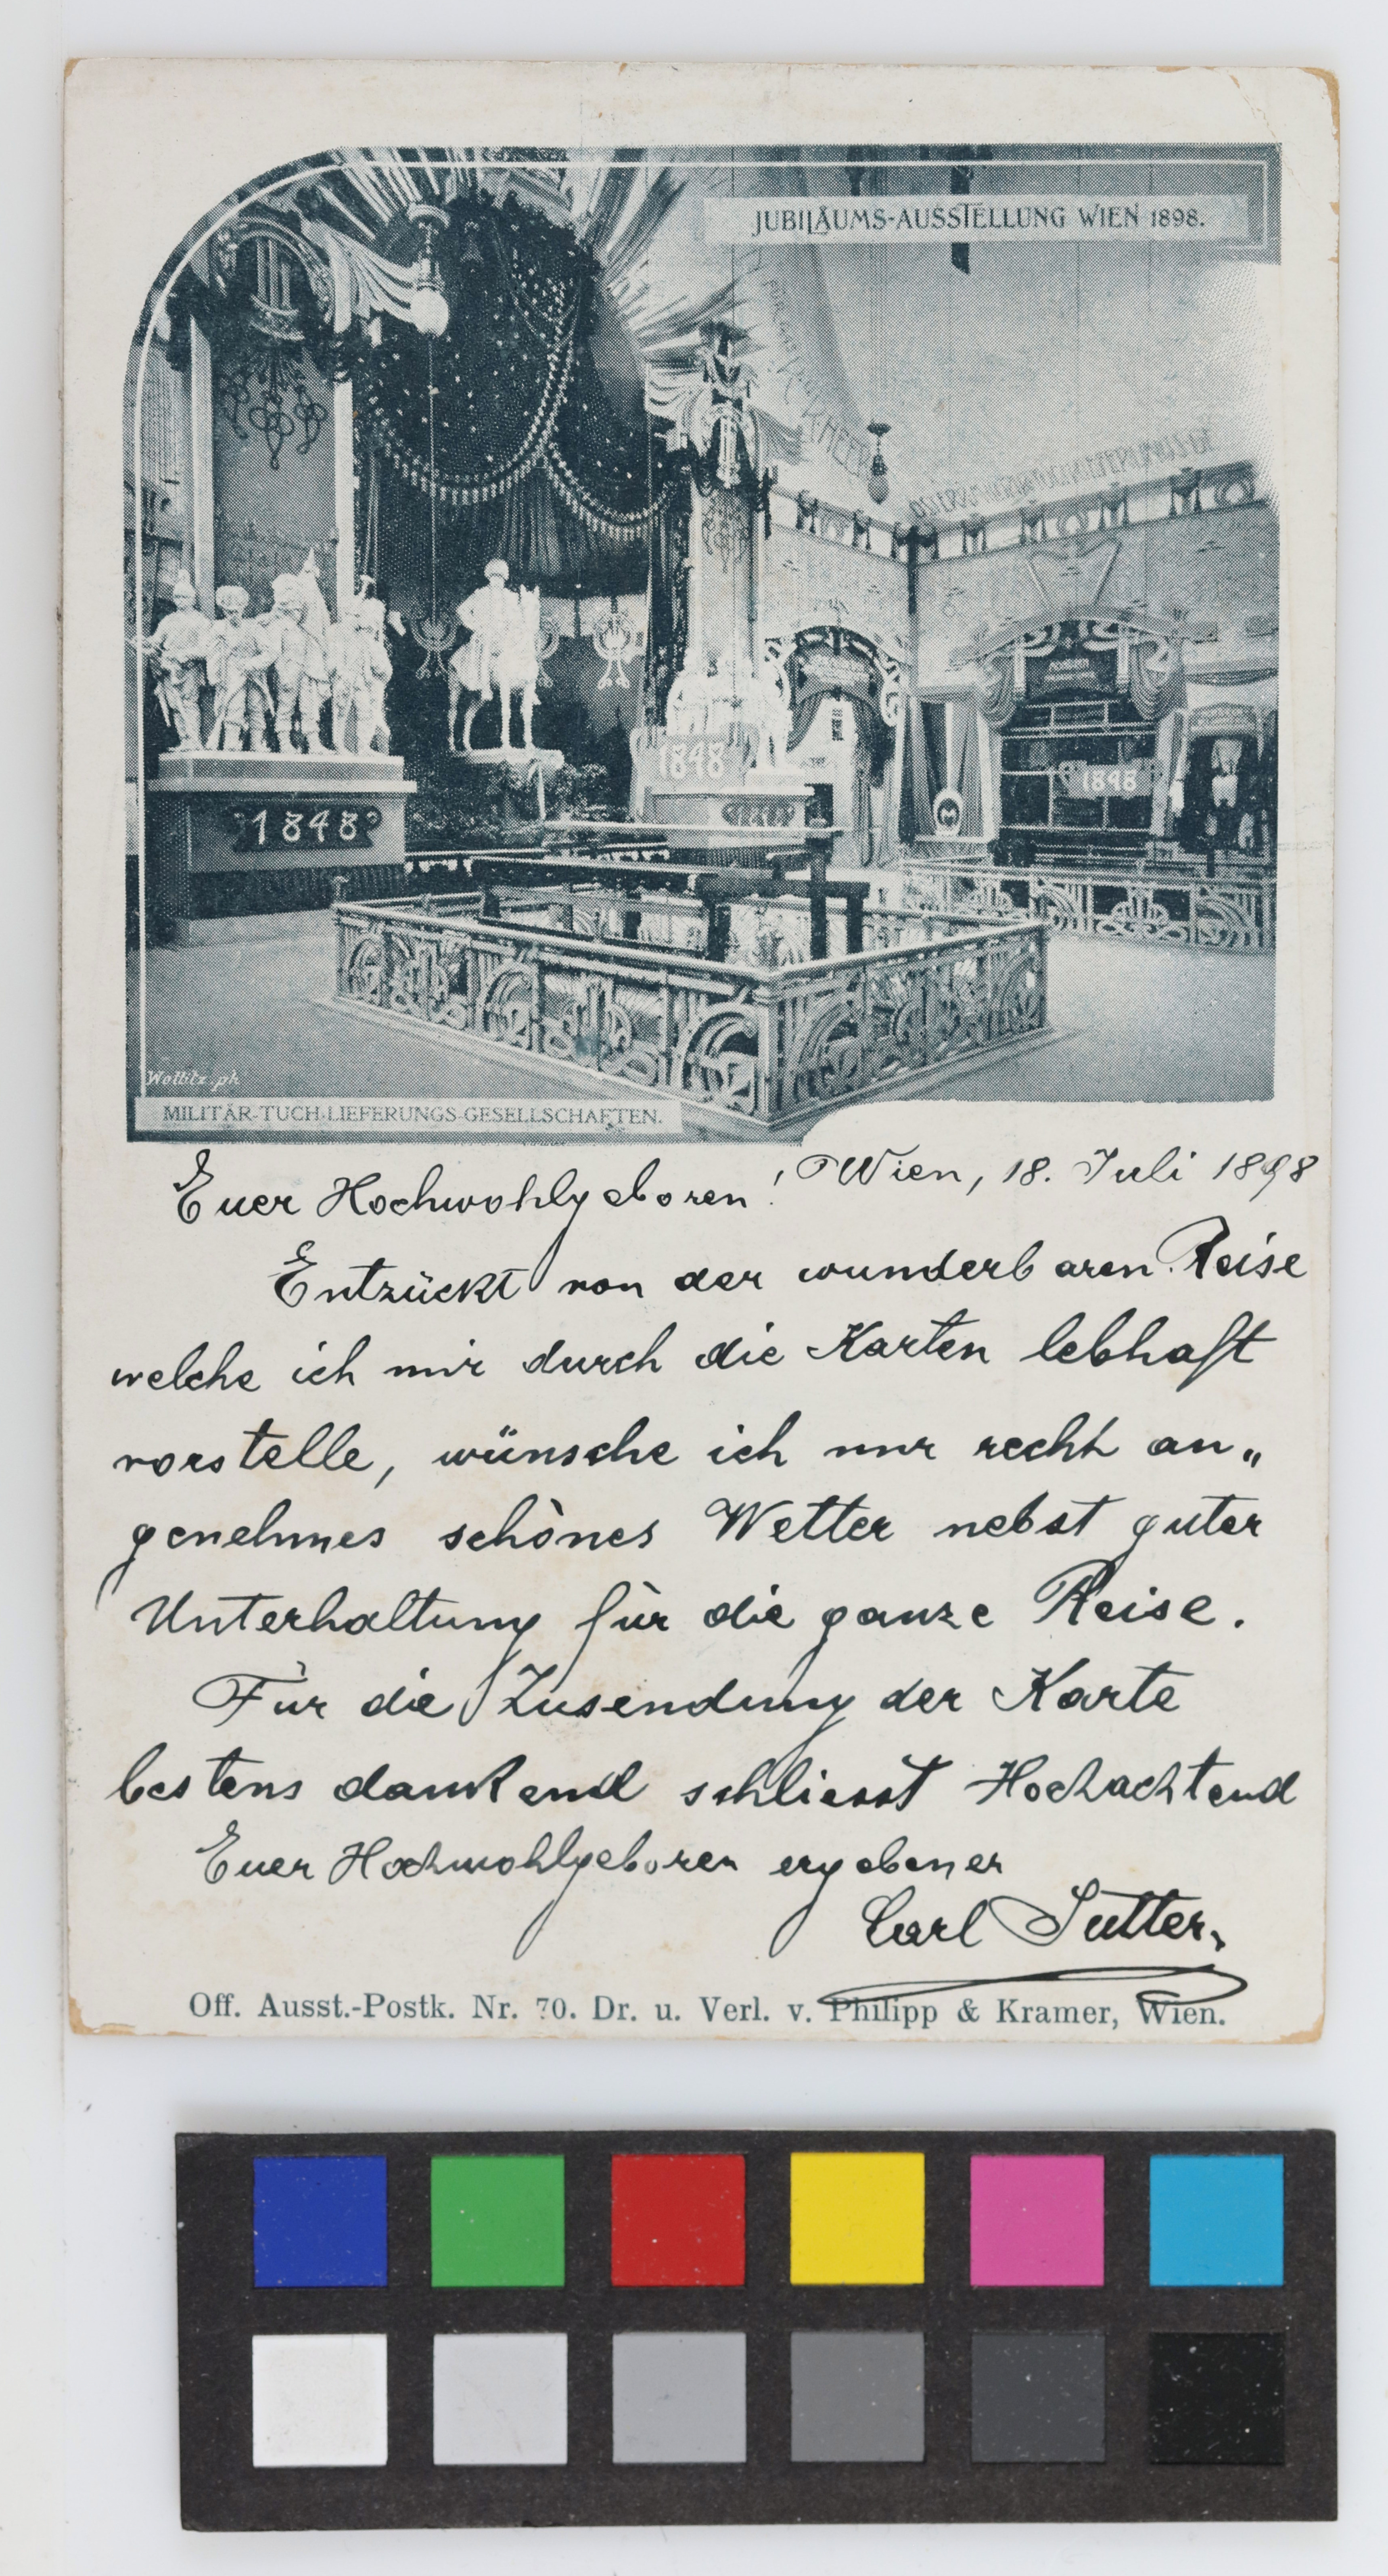 JUBILÄUMS-AUSSTELLUNG WIEN 1898.
1848
1848
1848
Wottitz.ph
MILITÄR-TUCH-LIEFERUNGS-GESELLSCHAFTEN.
Wien, 18. Juli 1898
Euer Hochwohlgeboren!
Entzückt von der wunderbaren Reise
welche ich mir durch die Karten lebhaft
vorstelle, wünsche ich nur recht an„
genehmes schönes Wetter nebst guter
Unterhaltung für die ganze Reise.
Für die Zusendung der Karte
bestens dankend schliesst Hochachtend
Euer Hochwohlgeboren ergebener
Carl Sutter.
Off. Ausst.-Postk. Nr. 70. Dr. u. Verl. v. Philipp & Kramer, Wien.